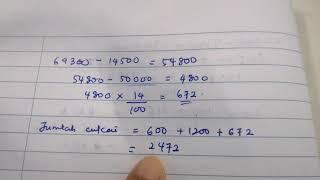 69300 - 14500 = 54800
54800 - 50000 = 4800
4800 × 14/100 = 672
Jumlah cukai = 600 + 1200 + 672
= 2472